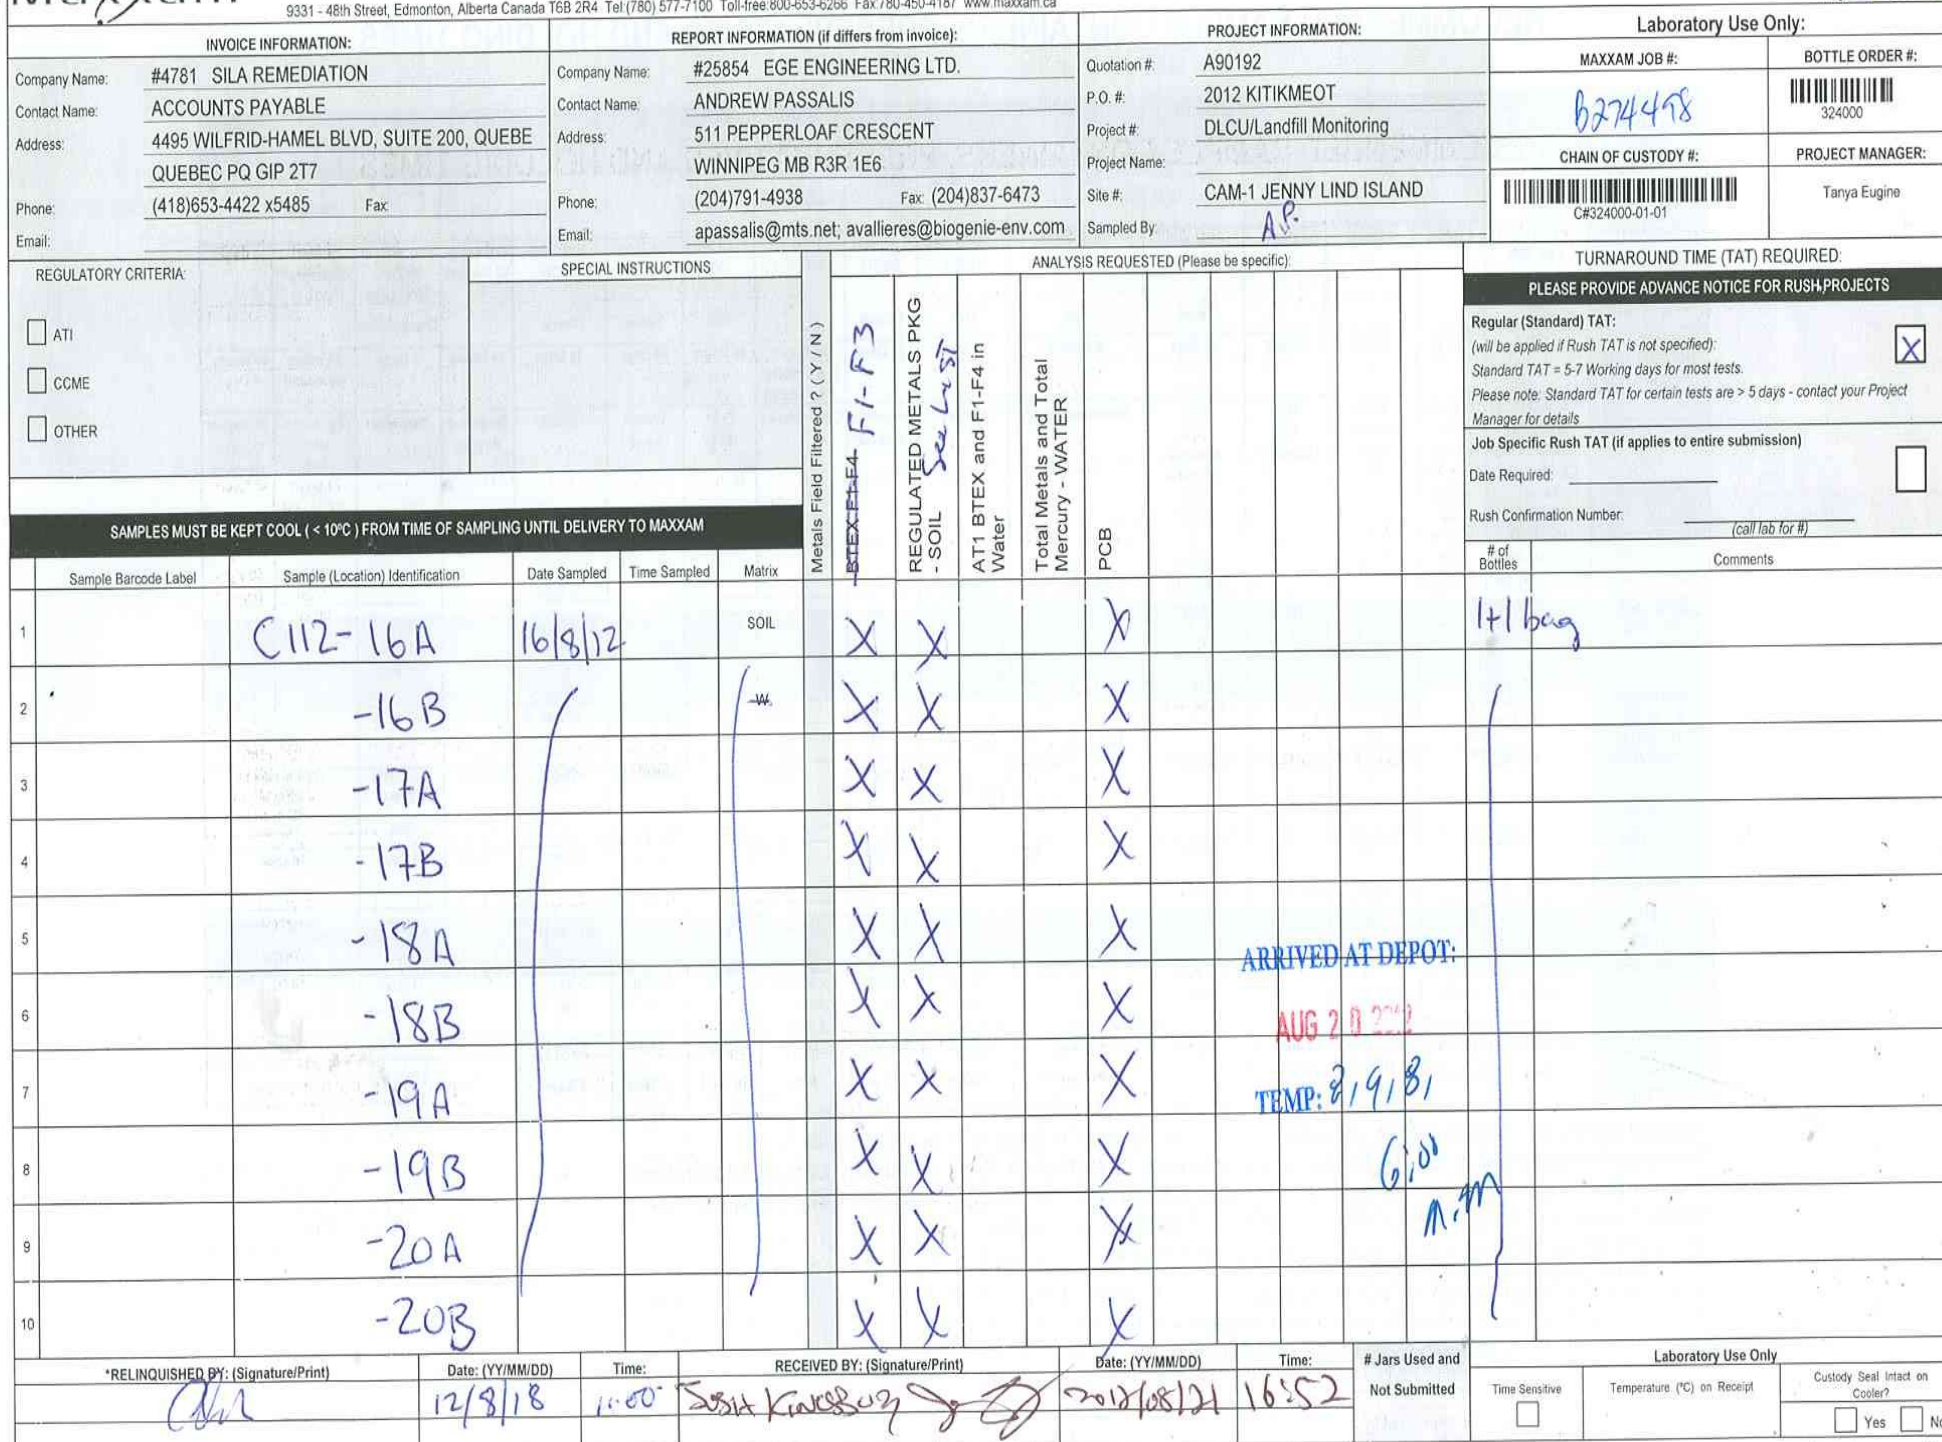 9331 - 48th Street, Edmonton, Alberta Canada T6B 2R4 Tel:(780) 577-7100 Toll-free:800-653-6266 Fax:780-450-4187 www.maxxam.ca
INVOICE INFORMATION:
Company Name: #4781 SILA REMEDIATION
Contact Name: ACCOUNTS PAYABLE
Address: 4495 WILFRID-HAMEL BLVD, SUITE 200, QUEBE
QUEBEC PQ GIP 2T7
Phone: (418)653-4422 x5485 Fax:
Email:
REPORT INFORMATION (if differs from invoice):
Company Name: #25854 EGE ENGINEERING LTD.
Contact Name: ANDREW PASSALIS
Address: 511 PEPPERLOAF CRESCENT
WINNIPEG MB R3R 1E6
Phone: (204)791-4938 Fax: (204)837-6473
Email: apassalis@mts.net; avallieres@biogenie-env.com
PROJECT INFORMATION:
Quotation #: A90192
P.O. #: 2012 KITIKMEOT
Project #: DLCU/Landfill Monitoring
Project Name:
Site #: CAM-1 JENNY LIND ISLAND
Sampled By: A.P.
Laboratory Use Only:
MAXXAM JOB #: BOTTLE ORDER #:
B274498
324000
CHAIN OF CUSTODY #: PROJECT MANAGER:
C#324000-01-01
Tanya Eugine
REGULATORY CRITERIA:
ATI
CCME
OTHER
SPECIAL INSTRUCTIONS
ANALYSIS REQUESTED (Please be specific):
Metals Field Filtered ? ( Y / N )
BTEX F1-F4 F1-F3
REGULATED METALS PKG
- SOIL See List
AT1 BTEX and F1-F4 in
Water
Total Metals and Total
Mercury - WATER
PCB
TURNAROUND TIME (TAT) REQUIRED:
PLEASE PROVIDE ADVANCE NOTICE FOR RUSH PROJECTS
Regular (Standard) TAT:
(will be applied if Rush TAT is not specified): X
Standard TAT = 5-7 Working days for most tests.
Please note: Standard TAT for certain tests are > 5 days - contact your Project
Manager for details
Job Specific Rush TAT (if applies to entire submission)
Date Required:
Rush Confirmation Number:
(call lab for #)
SAMPLES MUST BE KEPT COOL ( < 10°C ) FROM TIME OF SAMPLING UNTIL DELIVERY TO MAXXAM
Sample Barcode Label Sample (Location) Identification Date Sampled Time Sampled Matrix # of Bottles Comments
1 C112-16A 16/8/12 SOIL X X X 1+1 bag
2 -16B W X X X
3 -17A X X X
4 -17B X X X
5 -18A X X X
6 -18B X X X
7 -19A X X X
8 -19B X X X
9 -20A X X X
10 -20B X X X
ARRIVED AT DEPOT:
AUG 20 2012
TEMP: 8,9,8,
6:00
M.M
*RELINQUISHED BY: (Signature/Print) Date: (YY/MM/DD) Time: RECEIVED BY: (Signature/Print) Date: (YY/MM/DD) Time: # Jars Used and
Not Submitted
12/8/18 11:00 2012/08/21 16:52
Laboratory Use Only
Time Sensitive
Temperature (°C) on Receipt
Custody Seal Intact on
Cooler?
Yes